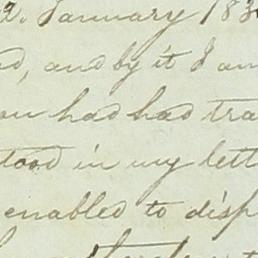 2. January 183
d, and by it I am
ou had had tra
stood in my lett
enabled to disp